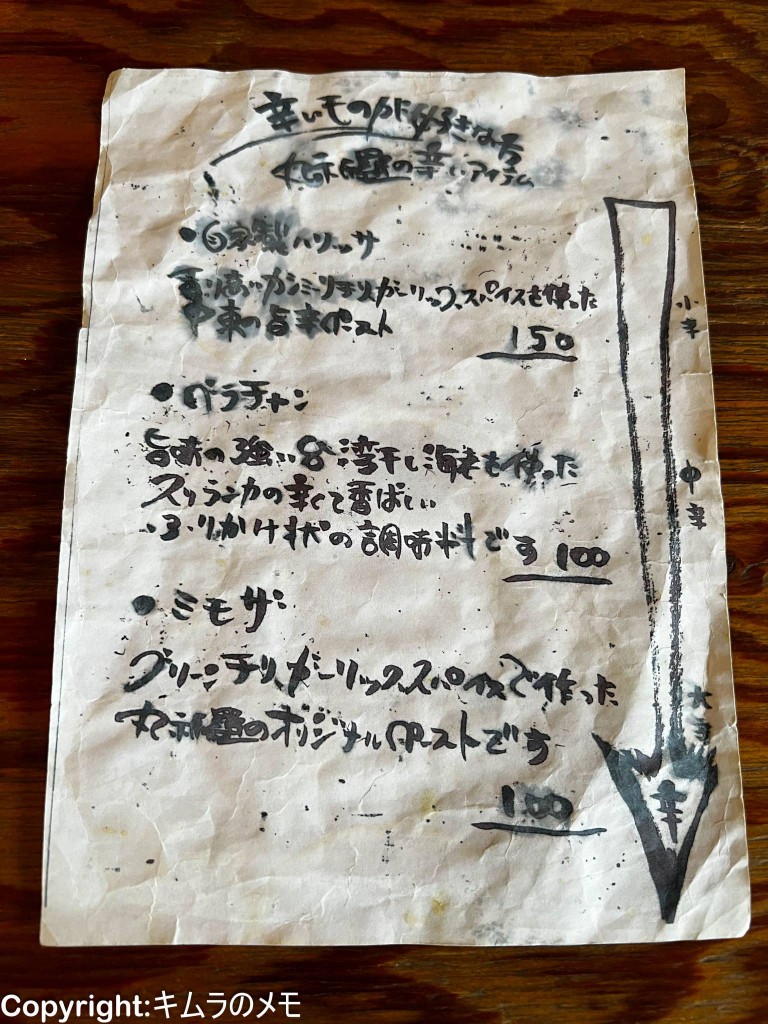 辛いモノが好きな方
の辛いアイテム
●自家製ハリッサ
香り高いカシミーリチリ、ガーリック、スパイスを使った
中東の旨辛ペースト
150
●バラチャン
旨味の強い台湾干し海老を使った
スリランカの辛くて香ばしい
ふりかけ状の調味料です 100
●ミモザ
グリーンチリ、ガーリック、スパイスで作った
のオリジナルペーストです
100
小辛
中辛
大辛
辛
Copyright:キムラのメモ